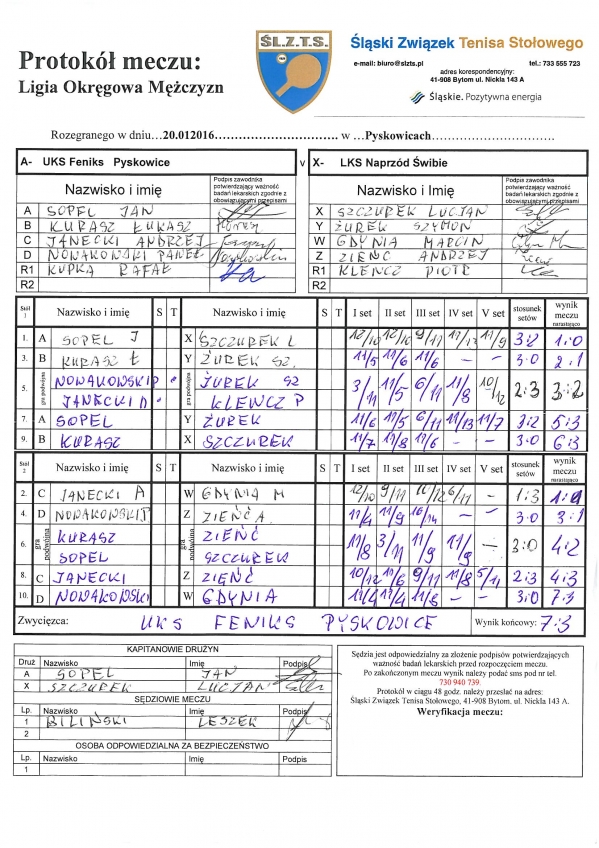 Protokół meczu:
Ligia Okręgowa Mężczyzn
ŚL.Z.T.S.
Śląski Związek Tenisa Stołowego
e-mail: biuro@slzts.pl tel.: 733 555 723
adres korespondencyjny:
41-908 Bytom ul. Nickla 143 A
Śląskie. Pozytywna energia
Rozegranego w dniu…20.012016……………………………. w …Pyskowicach……………………………
A- UKS Feniks Pyskowice v X- LKS Naprzód Świbie
Nazwisko i imię Podpis zawodnika potwierdzający ważność badań lekarskich zgodnie z obowiązującymi przepisami Nazwisko i imię Podpis zawodnika potwierdzający ważność badań lekarskich zgodnie z obowiązującymi przepisami
A SOPEL JAN X SZCZUREK LUCJAN
B KURASZ ŁUKASZ Y ŻUREK SZYMON
C JANECKI ANDRZEJ W GDYNIA MARCIN
D NOWAKOWSKI PAWEŁ Z ZIENĆ ANDRZEJ
R1 KUPKA RAFAŁ R1 KLENCZ PIOTR
R2 R2
Stół 1 Nazwisko i imię S T Nazwisko i imię S T I set II set III set IV set V set stosunek setów wynik meczu narastająco
1. A SOPEL J X SZCZUREK L 12/10 12/10 9/11 11/13 11/9 3:2 1:0
3. B KURASZ Ł Y ŻUREK SZ. 11/5 11/6 11/6 - - 3:0 2:1
5. gra podwójna NOWAKOWSKI P ŻUREK SZ 3/11 11/5 6/11 11/8 10/12 2:3 3:2
JANECKI A KLEWCZ P
7. A SOPEL Y ŻUREK 11/6 11/5 6/11 11/13 11/7 3:2 5:3
9. B KURASZ X SZCZUREK 11/7 11/8 11/6 - - 3:0 6:3
Stół 2 Nazwisko i imię S T Nazwisko i imię S T I set II set III set IV set V set stosunek setów wynik meczu narastająco
2. C JANECKI A W GDYNIA M 12/10 9/11 11/12 6/11 - 1:3 1:1
4. D NOWAKOWSKI P Z ZIENĆ A. 11/4 11/9 16/14 - - 3:0 3:1
6. gra podwójna KURASZ gra podwójna ZIENĆ 11/8 3/11 11/9 11/9 - 3:0 4:2
SOPEL SZCZUREK
8. C JANECKI Z ZIENĆ 10/12 11/6 9/11 11/8 5/11 2:3 4:3
10. D NOWAKOWSKI W GDYNIA 11/4 11/4 11/8 - - 3:0 7:3
Zwycięzca: UKS FENIKS PYSKOWICE Wynik końcowy: 7:3
KAPITANOWIE DRUŻYN
Druż Nazwisko Imię Podpis
A SOPEL JAN
X SZCZUREK LUCJAN
SĘDZIOWIE MECZU
Lp. Nazwisko Imię Podpis
1 BILIŃSKI LESZEK
2
OSOBA ODPOWIEDZIALNA ZA BEZPIECZEŃSTWO
Lp. Nazwisko Imię Podpis
1
Sędzia jest odpowiedzialny za złożenie podpisów potwierdzających
ważność badań lekarskich przed rozpoczęciem meczu.
Po zakończonym meczu wynik należy podać sms pod nr tel.
730 940 739.
Protokół w ciągu 48 godz. należy przesłać na adres:
Śląski Związek Tenisa Stołowego, 41-908 Bytom, ul. Nickla 143 A.
Weryfikacja meczu: